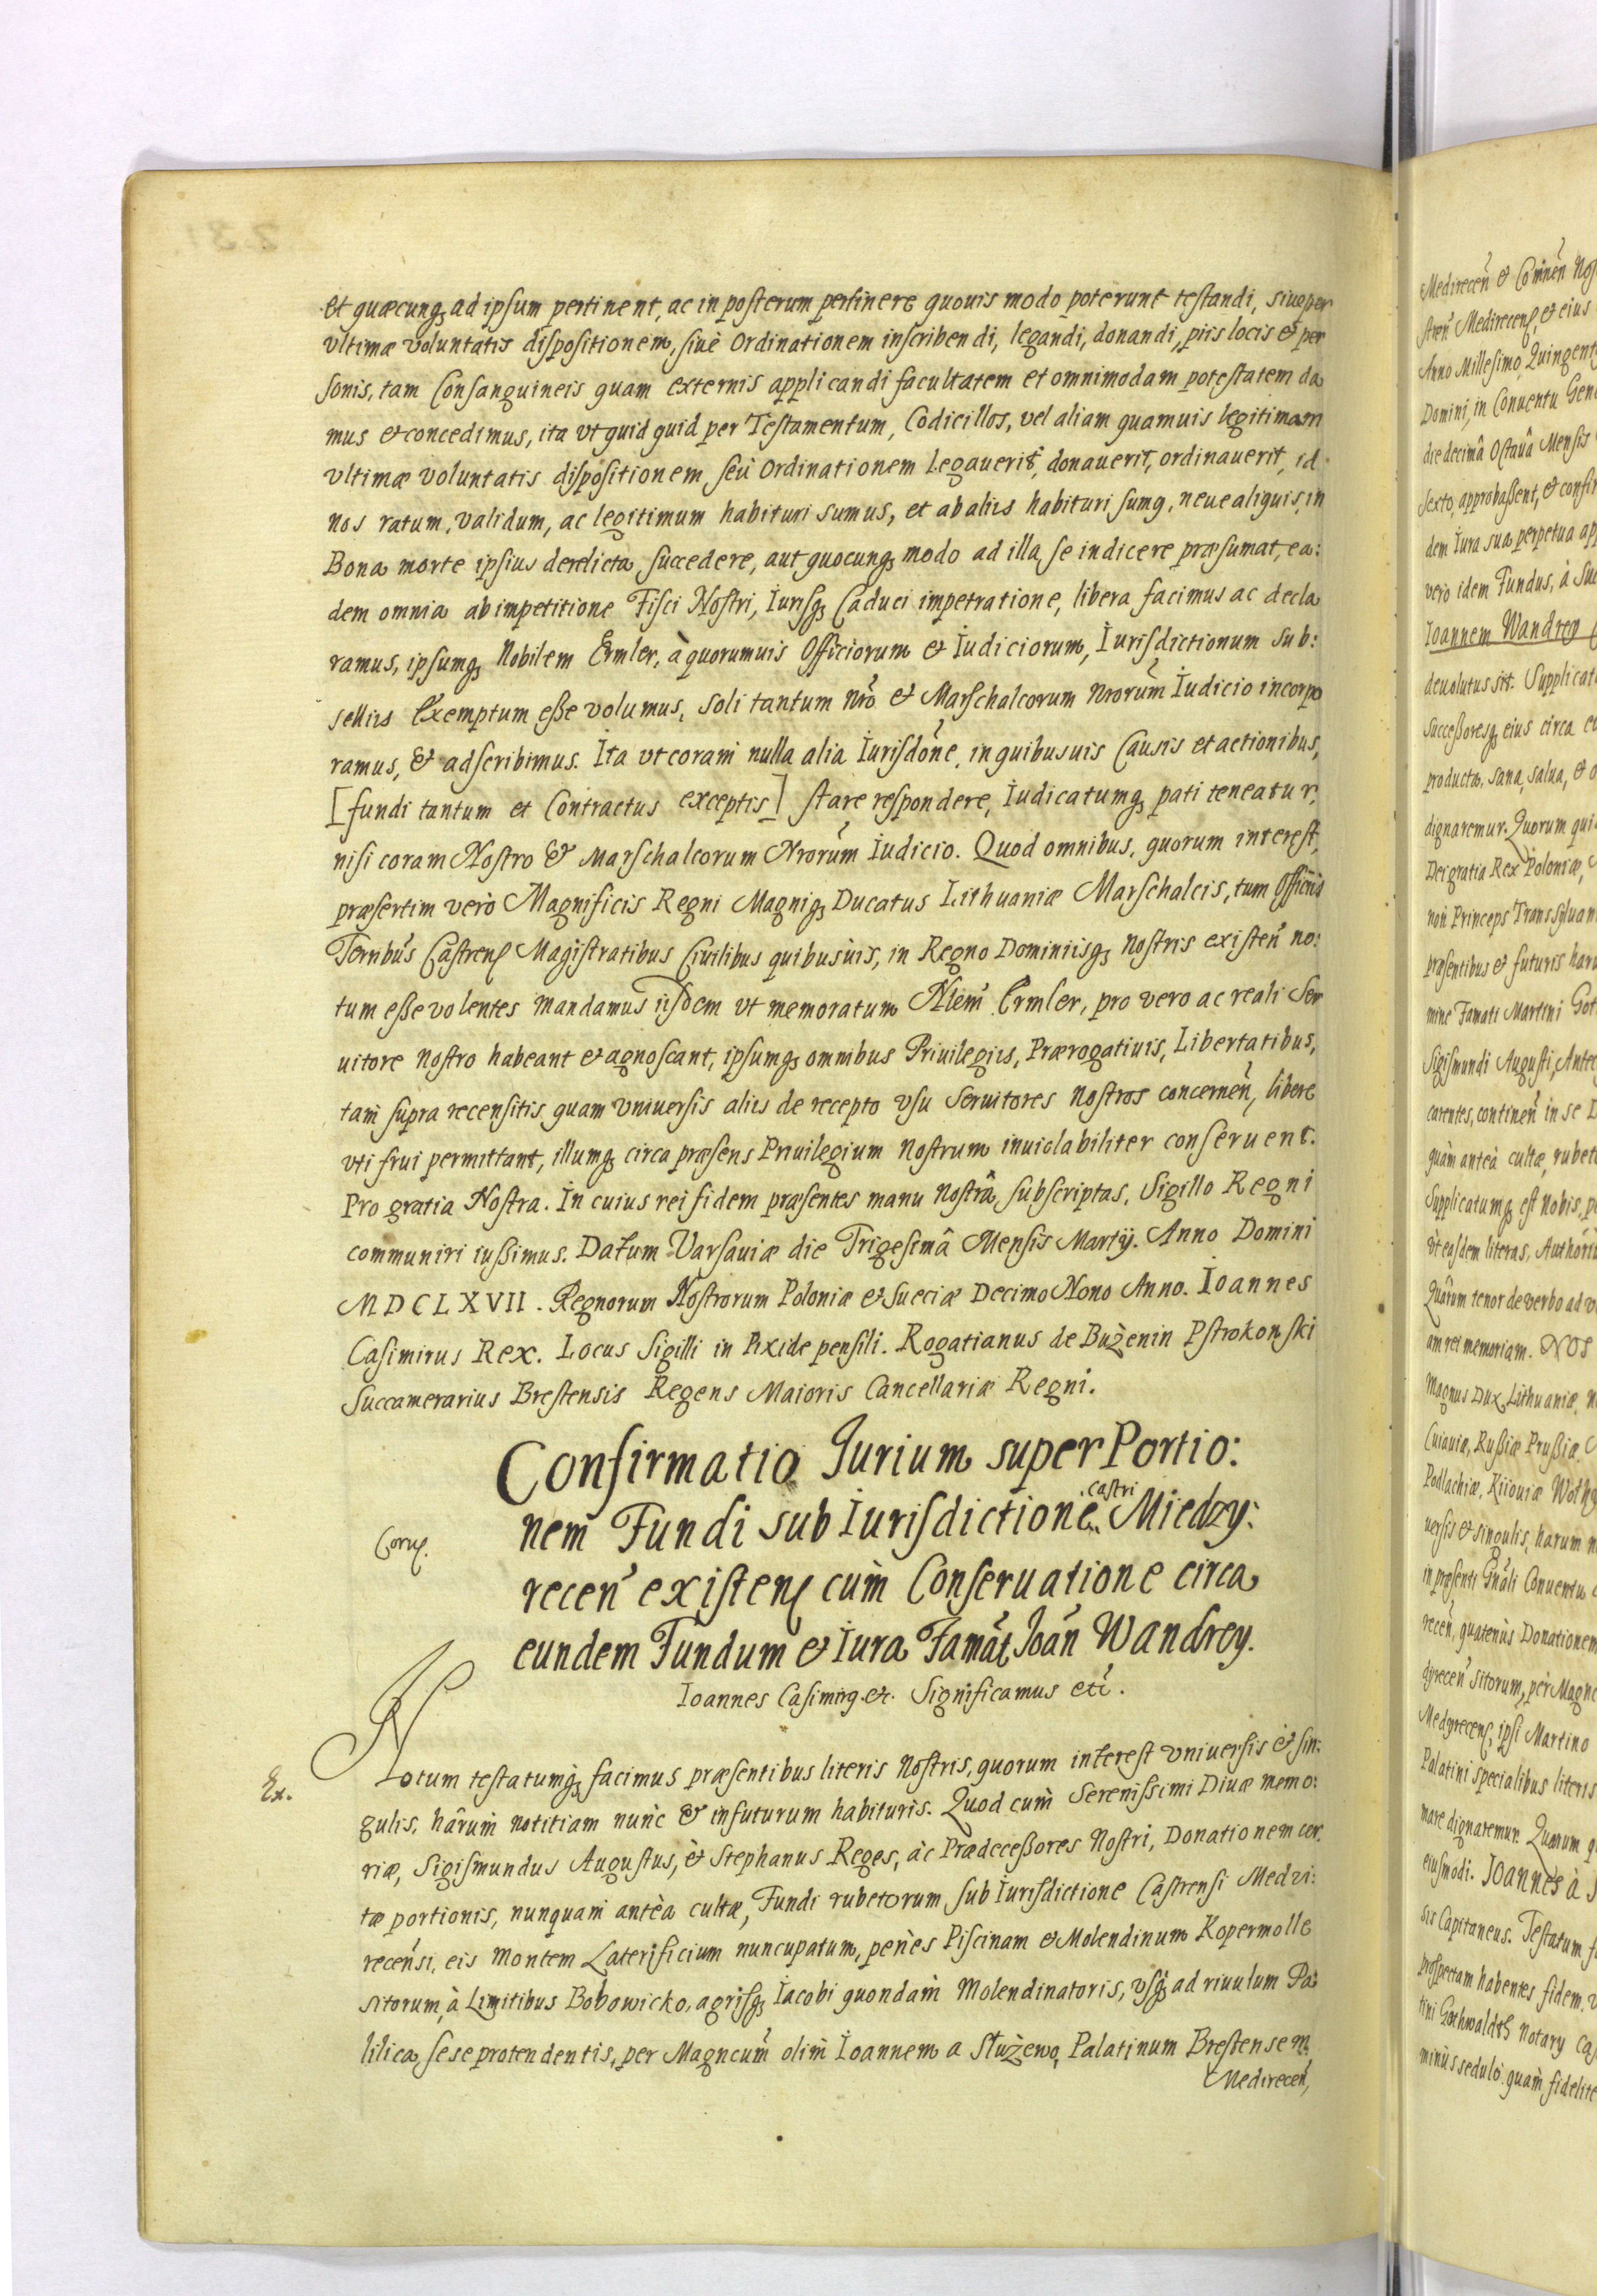 et quæcunq₃ ad ipsum pertinent, ac in posterum pertinere quouis modo poterunt testandi, siue per
vltimæ voluntatis dispositionem, siuè Ordinationem inscribendi, legandi, donandi, piis locis et per
sonis, tam Consanguineis quam externis applicandi facultatem et omnimodam potestatem da
mus et concedimus, ita vt quid quid per Testamentum, Codicillos, vel aliam quamuis legitimam
vltimæ voluntatis dispositionem seù Ordinationem Legauerit, donauerit, ordinauerit, id
nos ratum, validum, ac legitimum habituri sumus, et ab aliis habituri sumq, neue aliquis, in
Bona morte ipsius derelicta, succedere, aut quocunq₃ modo ad illa se indicere præsumat, ea:
dem omnia ab impetitione Fisci Nostri, Iurisq₃ Caduci impetratione, libera facimus ac decla
ramus, ipsumq₃ Nobilem Ermler, à quorumuis Officiorum et Iudiciorum, Iurisdictionum sub:
sellijs Exemptum eße volumus, soli tantum nr̃o et Marschalcorum Nrorum̃ Iudicio incorpo
ramus, et adscribimus. Ita vt coram nulla alia Iurisdone, in quibusuis Causis et actionibus,
[fundi tantum et Contractus exceptis] stare respondere, Iudicatumq₃ pati teneatur,
nisi coram Nostro et Marschalcorum Nrorum̃ Iudicio. Quod omnibus, quorum interest,
præsertim verò Magnificis Regni Magniq₃ Ducatus Lithuaniæ Marschalcis, tum Officijs
Terribus̃ Castren Magistratibus Ciuilibus quibusuis, in Regno Dominiisq₃ nostris existen̄ no:
tum eße volentes mandamus iisdem vt memoratum Nlem̃ Ermler, pro vero ac reali Ser
uitore Nostro habeant et agnoscant, ipsumq₃ omnibus Priuilegijs, Prærogatiuis, Libertatibus,
tam supra recensitis quam vniuersis alijs de recepto vsu Seruitores Nostros concernen̄, libere
vti frui permittant, illumq₃ circa præsens Priuilegium Nostrum inuiolabiliter conseruent.
Pro gratia Nostra. In cuius rei fidem præsentes manu Nostrâ subscriptas, Sigillo Regni
communiri iußimus. Datum Varsauiæ die Trigesimâ Mensis Martij. Anno Domini
MDCLXVII. Regnorum Nostrorum Poloniæ et Sueciæ Decimo Nono Anno. Ioannes
Casimirus Rex. Locus Sigilli in Pixide pensili. Rogatianus de Bużenin Pstrokonski
Succamerarius Brestensis Regens Maioris Cancellariæ Regni.
Confirmatio Jurium super Portio:
nem Fundi sub Iurisdictione castri Miedzy:
recen̄ existen cum Conseruatione circa
eundem Fundum et Iura Famat̃ Ioan̄ Wandrey.
Ioannes Casimirq. et. Significamus etc̃.
Notum testatumq₃ facimus præsentibus literis Nostris, quorum interest vniuersis et sin:
gulis, hârum notitiam nunc et in futurum habituris. Quod cùm Serenissimi Diuæ memo:
riæ, Sigismundus Augustus, et Stephanus Reges, ac Prædeceßores Nostri, Donationem cer:
tæ portionis, nunquam antèa cultæ, Fundi rubetorum sub Iurisdictione Castrensi Medzi:
recensi, eis Montem Laterificium nuncupatum, penes Piscinam et Molendinum Kopermolle
sitorum, à Limitibus Bobowicko, agrisq₃ Iacobi quondam Molendinatoris, vsq₃ ad riuulum Pa:
lilica sese protendentis, per Magncum̃ olim Ioannem a Służewo, Palatinum Brestensem
Medirecen̄,
Ex.
Medirecen̄ et Com̃nen̄
Medirecen, et eius
Anno Millesimo Quingent
Domini, in Conuentu Gen
die decimâ Octauâ Mensis
Sexto, approbaßent, et confir
dem Iura sua perpetua ap
verò idem Fundus, à suc
Ioannem Wandrey
deuolutus sit. Supplicat
Succeßoresq₃ eius circa
producta, sana, salua, et
dignaremur. Quorum qui
Dei gratia Rex Poloniæ,
non Princeps Transsyluan
præsentibus et futuris haru
mine Famati Martini Got
Sigismundi Augusti, Ante
carentes, continen̄ in se
quàm anteà cultæ, rubet
Supplicatumq₃ est Nobis, p
vt easdem literas, Authori
Quârum tenor de verbo ad v
am rei memoriam. NOS
Magnus Dux Lithuaniæ,
Cuiauiæ, Rußiæ Prußiæ
Podlachiæ, Kiiouiæ Wolhy
uersis et singulis, harum n
in præsenti Gnali Conuentu
recen̄, quatenùs Donationem
dzyrecen̄ sitorum, per Magn
Medyrecens, ipsi Martino
Palatini specialibus literis
mare dignaremur. Quorum q
eiusmodi. Ioannes à
sis Capitaneus. Testatum f
prospectam habentes fidem,
tini Gothwaldth Notary Ca
minùs sedulò quàm fidelite